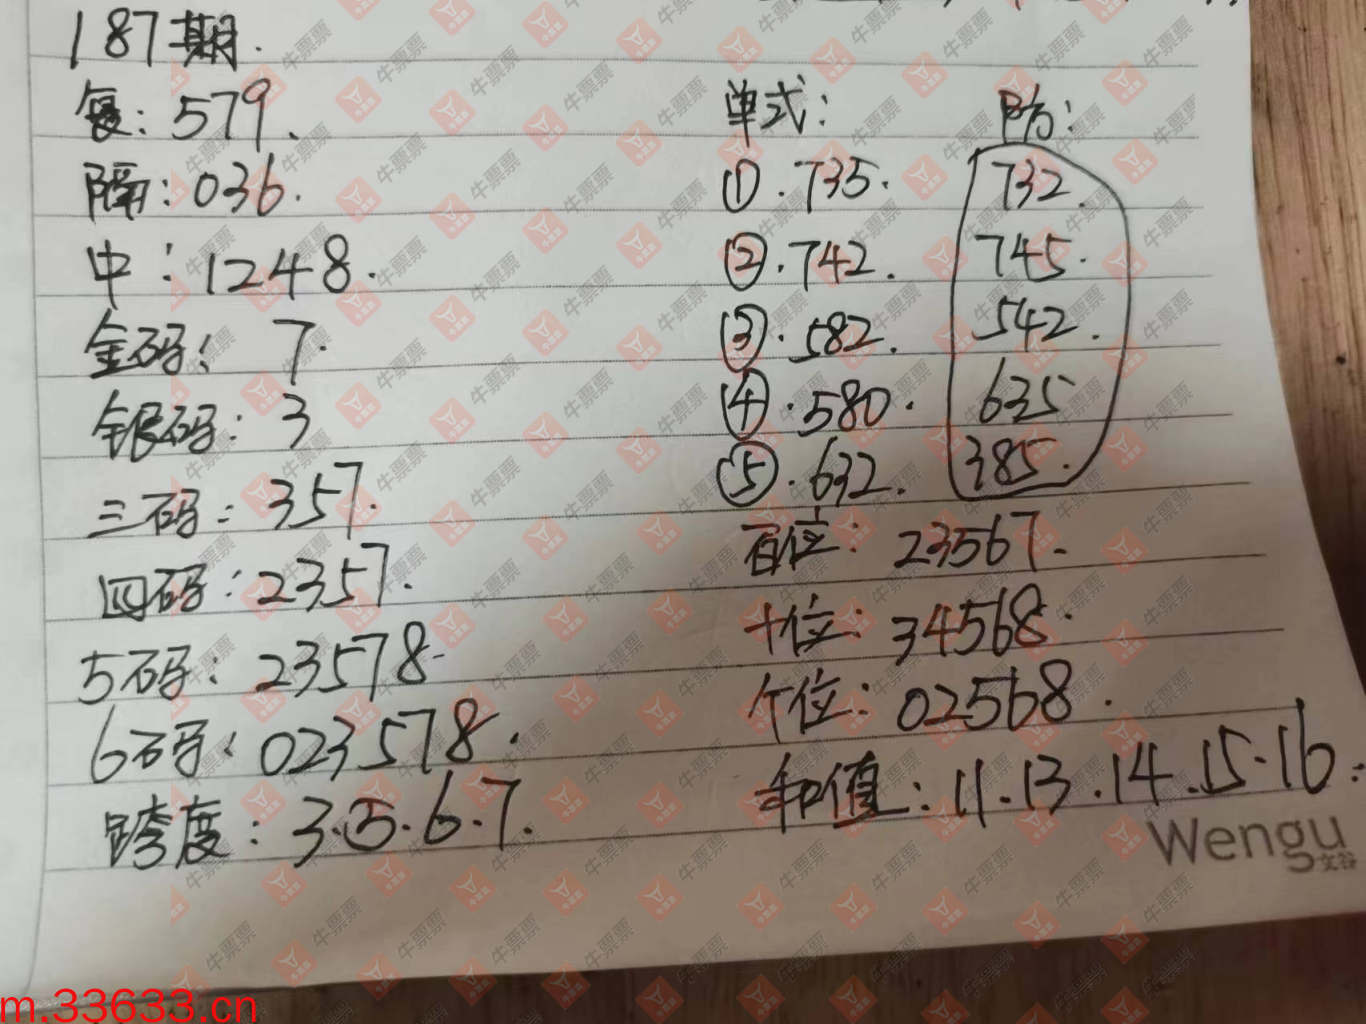 187期.
复: 579.
隔: 036.
中: 1248.
金码: 7.
银码: 3
三码: 357.
四码: 2357.
5码: 23578
6码: 023578.
跨度: 3.⑤.6.7.
单式: 防:
①.735. 732.
②.742. 745.
③.582. 542.
④.580. 635
⑤.632. 385.
百位: 23567.
十位: 34568.
个位: 02568.
和值: 11.13.14.15.16.
Wengu
文谷
牛票票
m.33633.cn